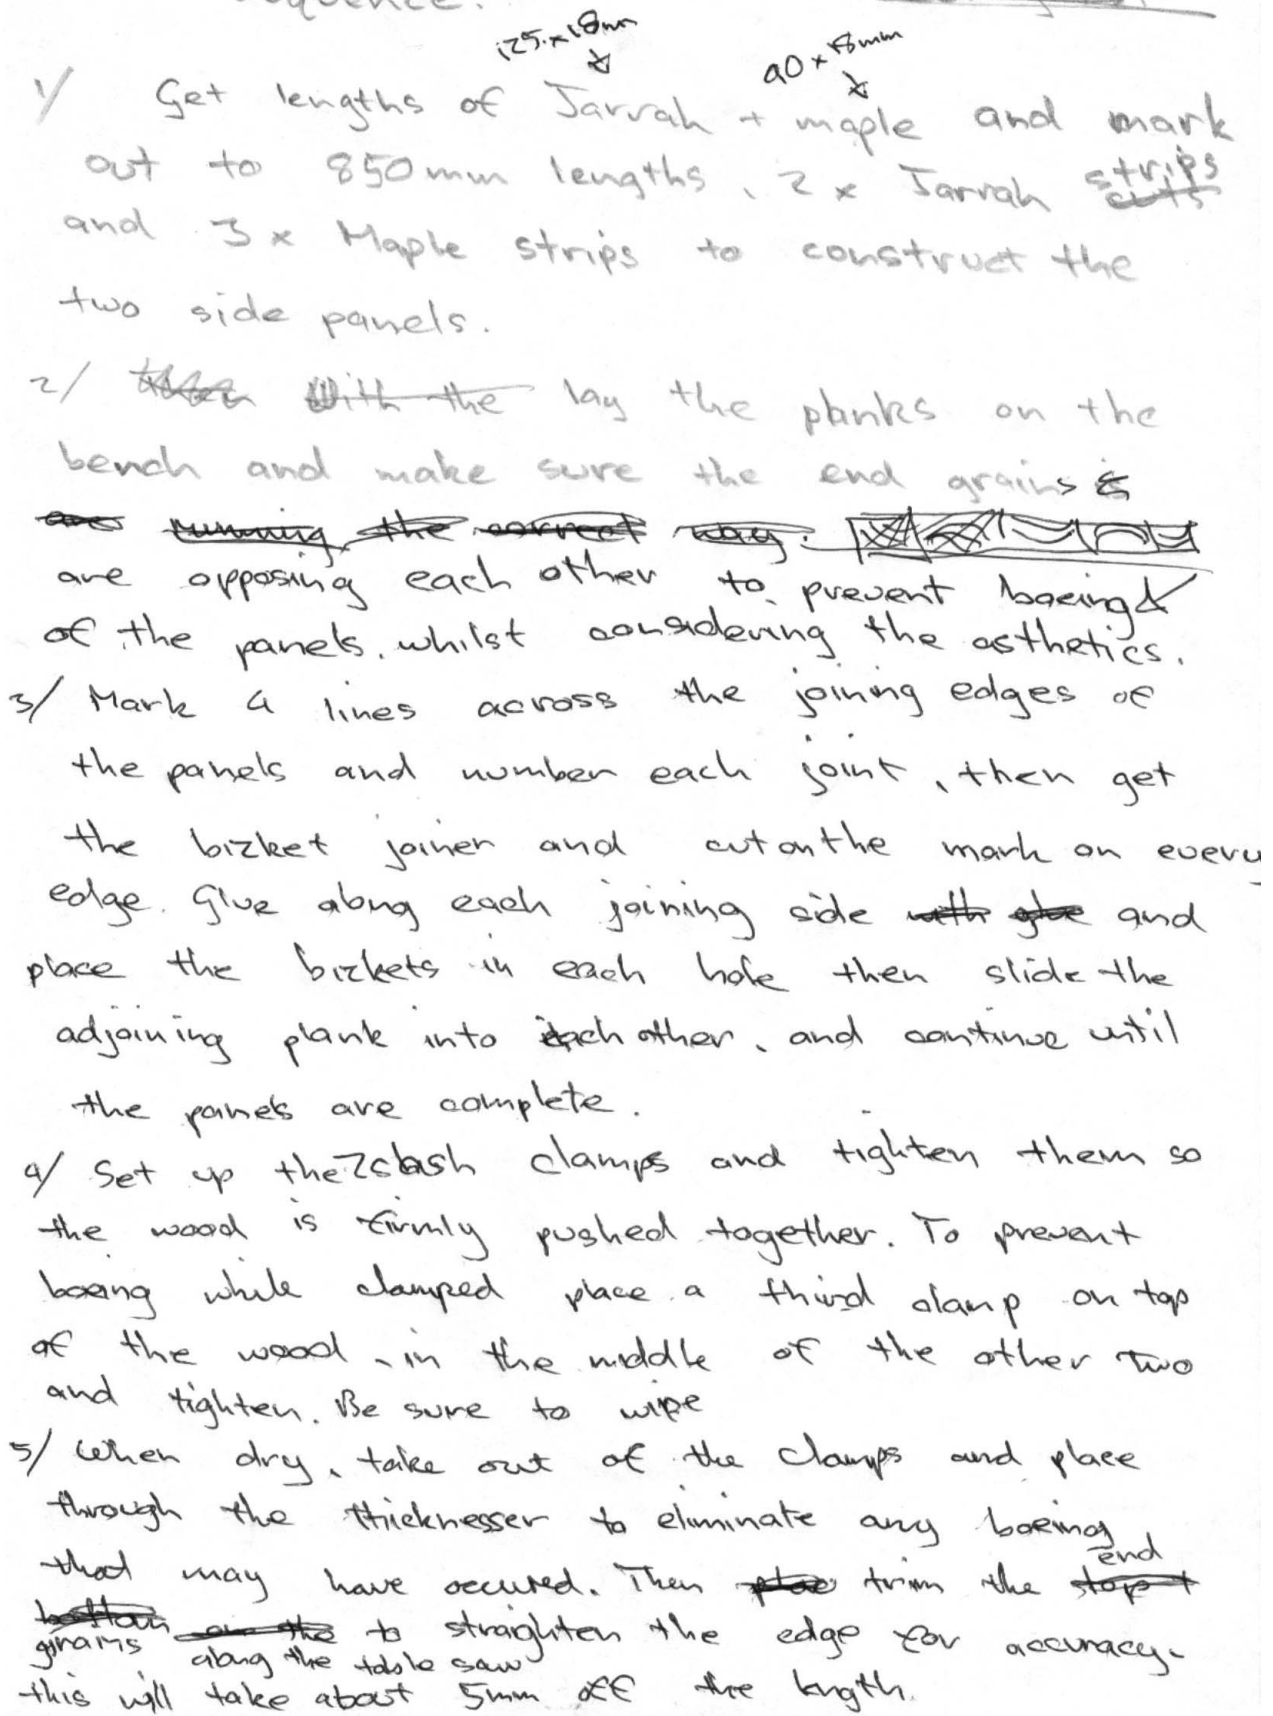 sequence.
125 x 18mm
90 x 18mm
1/ Get lengths of Jarrah + maple and mark
out to 850mm lengths, 2 x Jarrah strips
cuts
and 3 x Maple strips to construct the
two side panels.
2/ With the lay the planks on the
bench and make sure the end grains is
are running the correct way.
are opposing each other to prevent boeing
of the panels, whilst considering the asthetics.
3/ Mark 4 lines across the joining edges of
the panels and number each joint, then get
the bizket joiner and cut on the mark on every
edge. Glue along each joining side with glue and
place the bizkets in each hole then slide the
adjoining plank into each other, and continue until
the panels are complete.
4/ Set up the 2 sash clamps and tighten them so
the wood is firmly pushed together. To prevent
boeing while clamped place a third clamp on top
of the wood, in the middle of the other two
and tighten. Be sure to wipe
5/ When dry, take out of the clamps and place
through the thicknesser to eliminate any boeing
that may have occured. Then place trim the top +
end
bottom on the to straighten the edge for accuracy.
grains along the table saw
this will take about 5mm off the length.